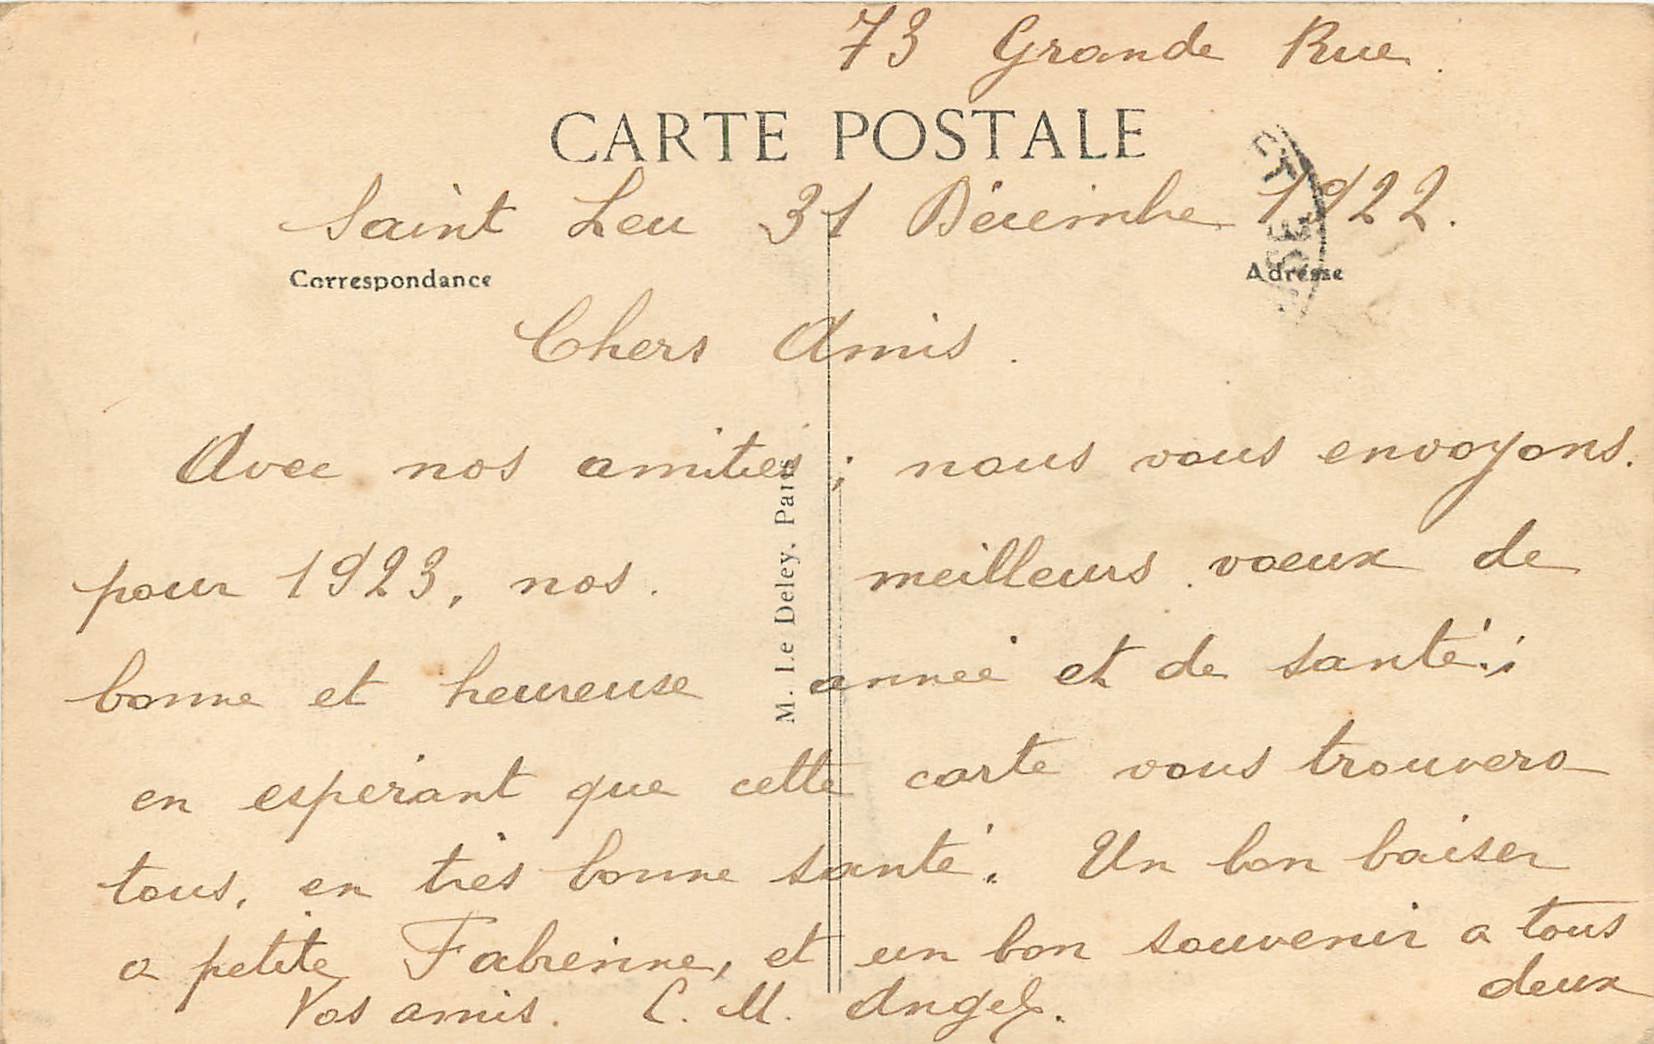 73 Grande Rue.
CARTE POSTALE
Saint Leu 31 Décembre 1922.
Correspondance
Adresse
Chers Amis.
Avec nos amitiés; nous vous envoyons.
pour 1923, nos. meilleurs voeux de
bonne et heureuse année et de santé;
en espérant que cette carte vous trouvera
tous, en très bonne santé. Un bon baiser
a petite Fabienne, et un bon souvenir a tous
deux
Vos amis. C. M.
M. Le Deley, Paris